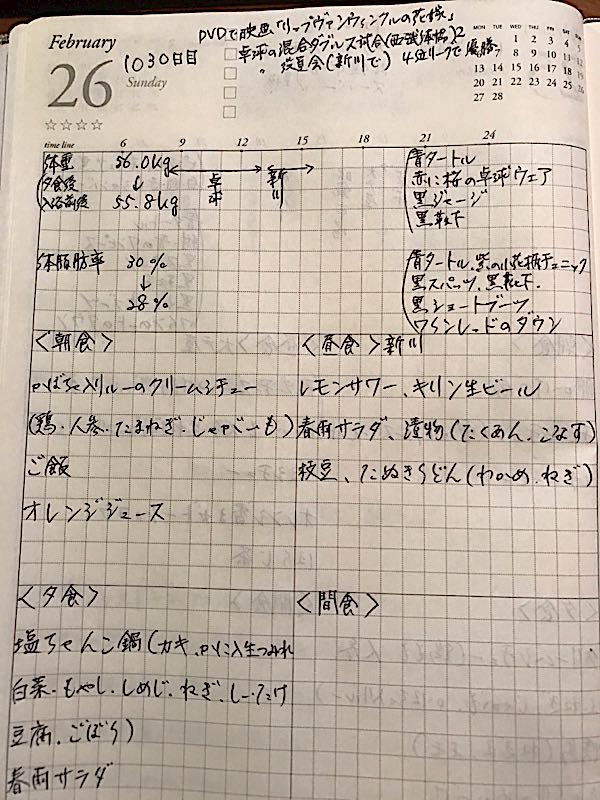 February
26
Sunday
☆☆☆☆
1030日目
DVDで映画「リップヴァンウィンクルの花嫁」
卓球の混合ダブルス試合
反省会(新川で) 4位リーグで優勝
MON TUE WED THU FRI SAT SUN
1 2 3 4 5
6 7 8 9 10 11 12
13 14 15 16 17 18 19
20 21 22 23 24 25 26
27 28
time line 6 9 12 15 18 21 24
体重 56.0kg
夕食後 ↓
入浴前後 55.8kg
卓球
新川
青タートル
赤に桜の卓球ウェア
黒ジャージ
黒靴下
体脂肪率 30%
↓
28%
青タートル、紫の小花柄チュニック
黒スパッツ、黒靴下、
黒ショートブーツ
ワインレッドのダウン
<朝食>
かぼちゃ入りルーのクリームシチュー
(鶏・人参・たまねぎ・じゃがいも)
ご飯
オレンジジュース
<昼食>新川
レモンサワー、キリン生ビール
春雨サラダ、漬物(たくあん、こなす)
枝豆、たぬきうどん(わかめ、ねぎ)
<夕食>
塩ちゃんこ鍋(カキ、かに入生つみれ
白菜・もやし・しめじ、ねぎ、しいたけ
豆腐、ごぼう)
春雨サラダ
<間食>